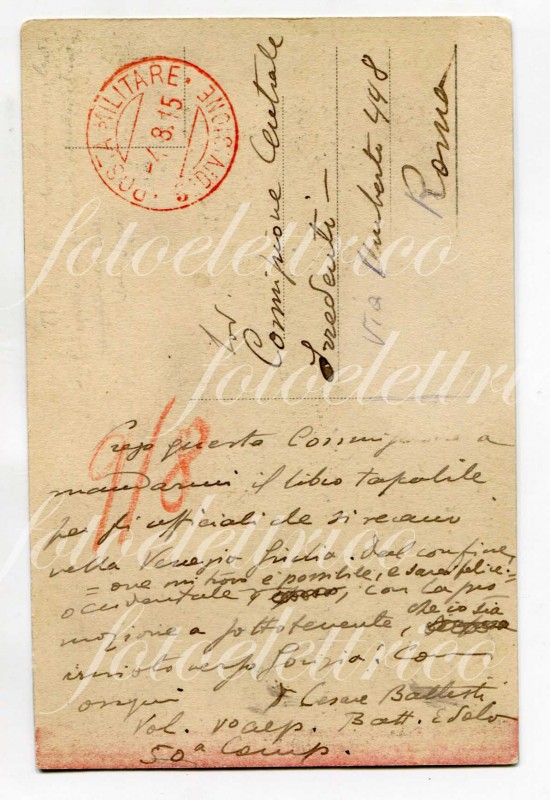 POSTA MILITARE
5 DIVISIONE
7.8.15
Commissione Centrale
Irredenti
Via Umberto 448
Roma
9/8
Prego questa Commissione a
mandarmi il libro tascabile
per gli ufficiali che si recano
nella Venezia Giulia. Dal confine
ove mi trovo è possibile, e sarei felice
occidentale, con la pro
mozione a sottotenente, che io sia
inviato verso Gorizia. Con
ossequi Cesare Battisti
Vol. Batt. Edolo
50a Comp.
fotoelettrico
fotoelettrico
fotoelettrico
fotoelettrico